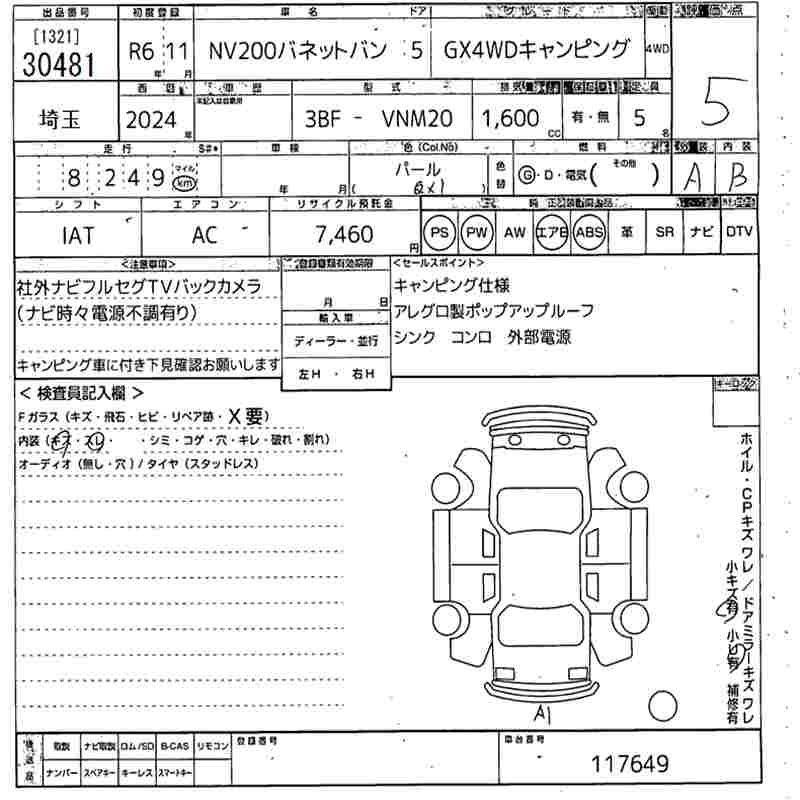 出品番号 初度登録 車名 ドア グレード 駆動 評価点
[1321]
30481 R6 11 年 月 NV200バネットバン 5 GX4WDキャンピング 4WD 5
西暦 車歴 型式 定員
未記入は自家用
埼玉 2024 年 3BF - VNM20 1,600 CC 有・無 5 名
走行 S#* 車検 色(Col.No) 燃料 外装 内装
8 2 4 9 マイル km 年 月 パール (QX1) 色替 G・D・電気( その他 ) A B
シフト エアコン リサイクル預託金 純正装備品
IAT AC 7,460 円 PS PW AW エアB ABS 革 SR ナビ DTV
<注意事項> 登録書類有効期限 <セールスポイント>
社外ナビフルセグTVバックカメラ
(ナビ時々電源不調有り)
キャンピング車に付き下見確認お願いします
月 日
輸入車
ディーラー・並行
左H ・ 右H
キャンピング仕様
アレグロ製ポップアップルーフ
シンク コンロ 外部電源
< 検査員記入欄 >
Fガラス (キズ・飛石・ヒビ・リペア跡・X要)
内装 (キズ・スレ・ ・シミ・コゲ・穴・キレ・破れ・割れ)
オーディオ (無し・穴) / タイヤ (スタッドレス)
キーロック
ホイル・CPキズワレ / ドアミラーキズワレ
小キズ有 小凹有 補修有
A1
後送品 取説 ナビ取説 ロム/SD B-CAS リモコン 登録番号 車台番号
ナンバー スペアキー キーレス スマートキー
117649